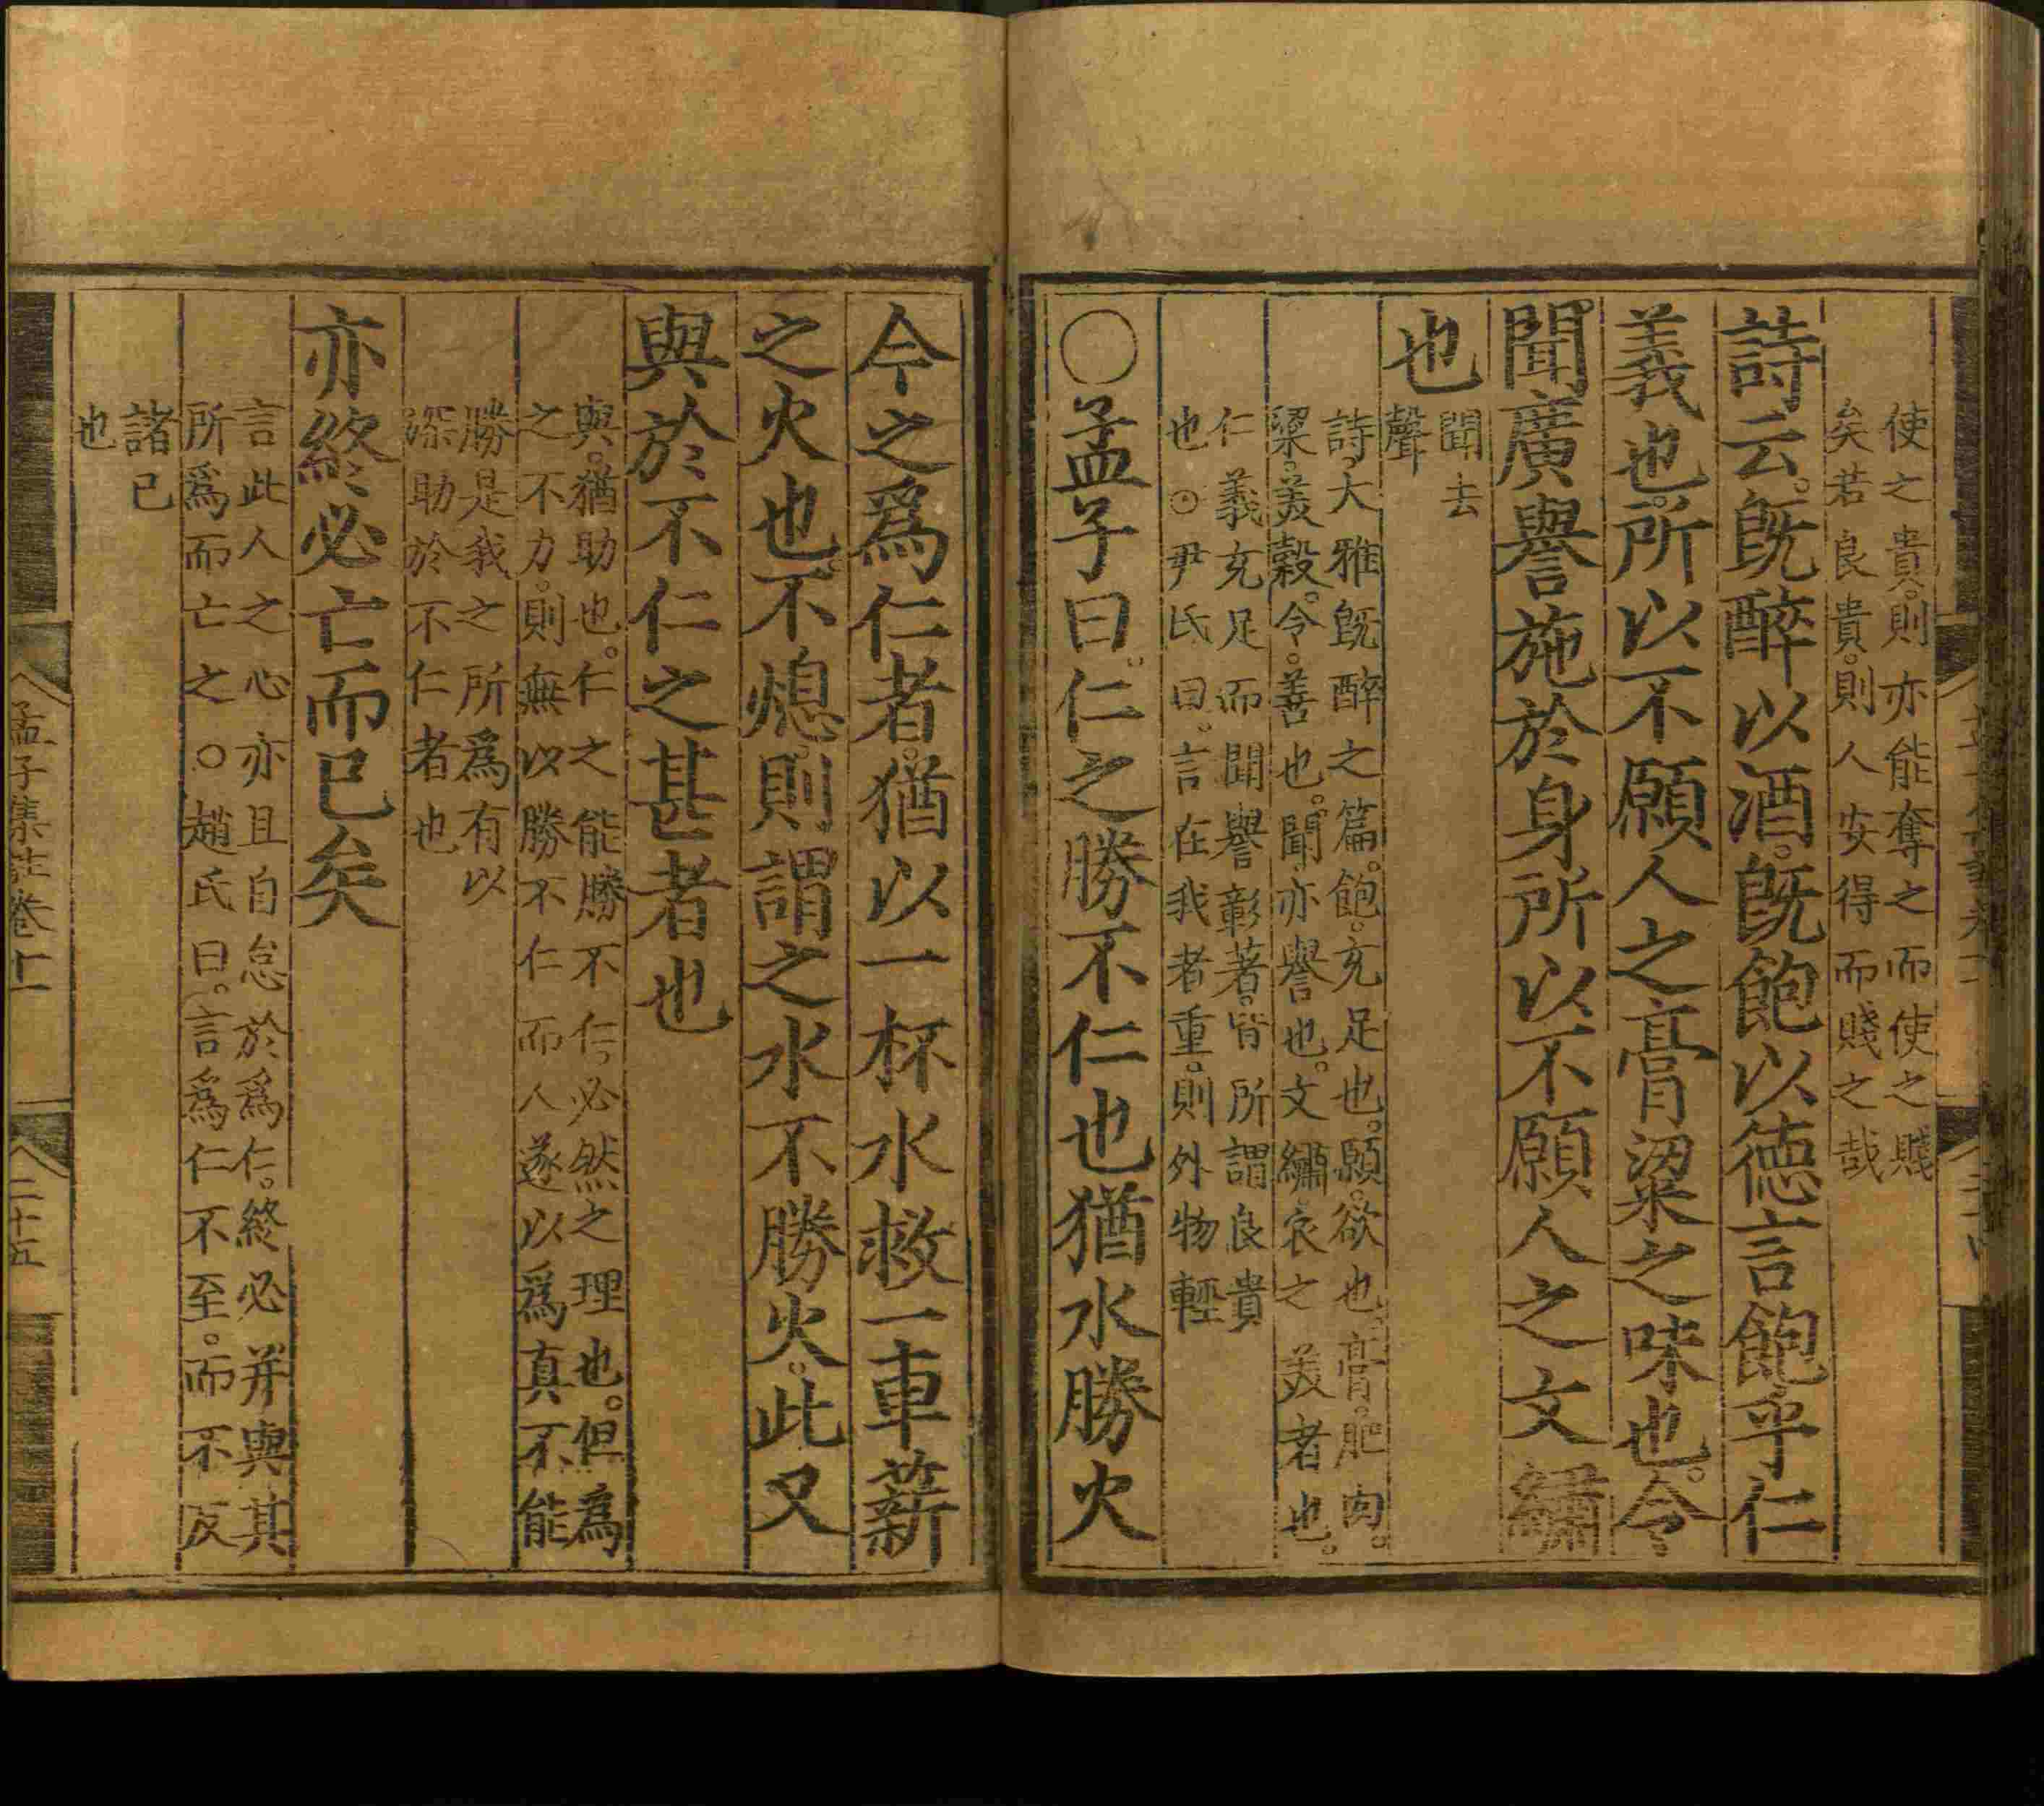 使之貴。則亦能奪之而使之賤
矣若良貴。則人安得而賤之哉
詩云。旣醉以酒。旣飽以德言飽乎仁
義也。所以不願人之膏粱之味也。令
聞廣譽施於身所以不願人之文繡
也
聞去
聲
詩、大雅旣醉之篇。飽。充足也。願。欲也。膏。肥肉。
粱。美穀。令。善也。聞亦譽也。文繡衣之美者也。
仁義充足而聞譽彰著。皆所謂良貴
也⊙尹氏曰。言在我者重。則外物輕
○孟子曰。仁之勝不仁也猶水勝火
今之爲仁者。猶以一杯水救一車薪
之火也。不熄。則謂之水不勝火。此又
與於不仁之甚者也
與。猶助也。仁之能勝不仁、必然之理也。但爲
之不力。則無以勝不仁而人遂以爲真不能
勝是我之所爲有以
深助於不仁者也
亦終必亡而已矣
言此人之心亦且自怠於爲仁。終必并與其
所爲而亡之○趙氏曰。言爲仁不至。而不反
諸已
也
孟子集註卷十一
二十五